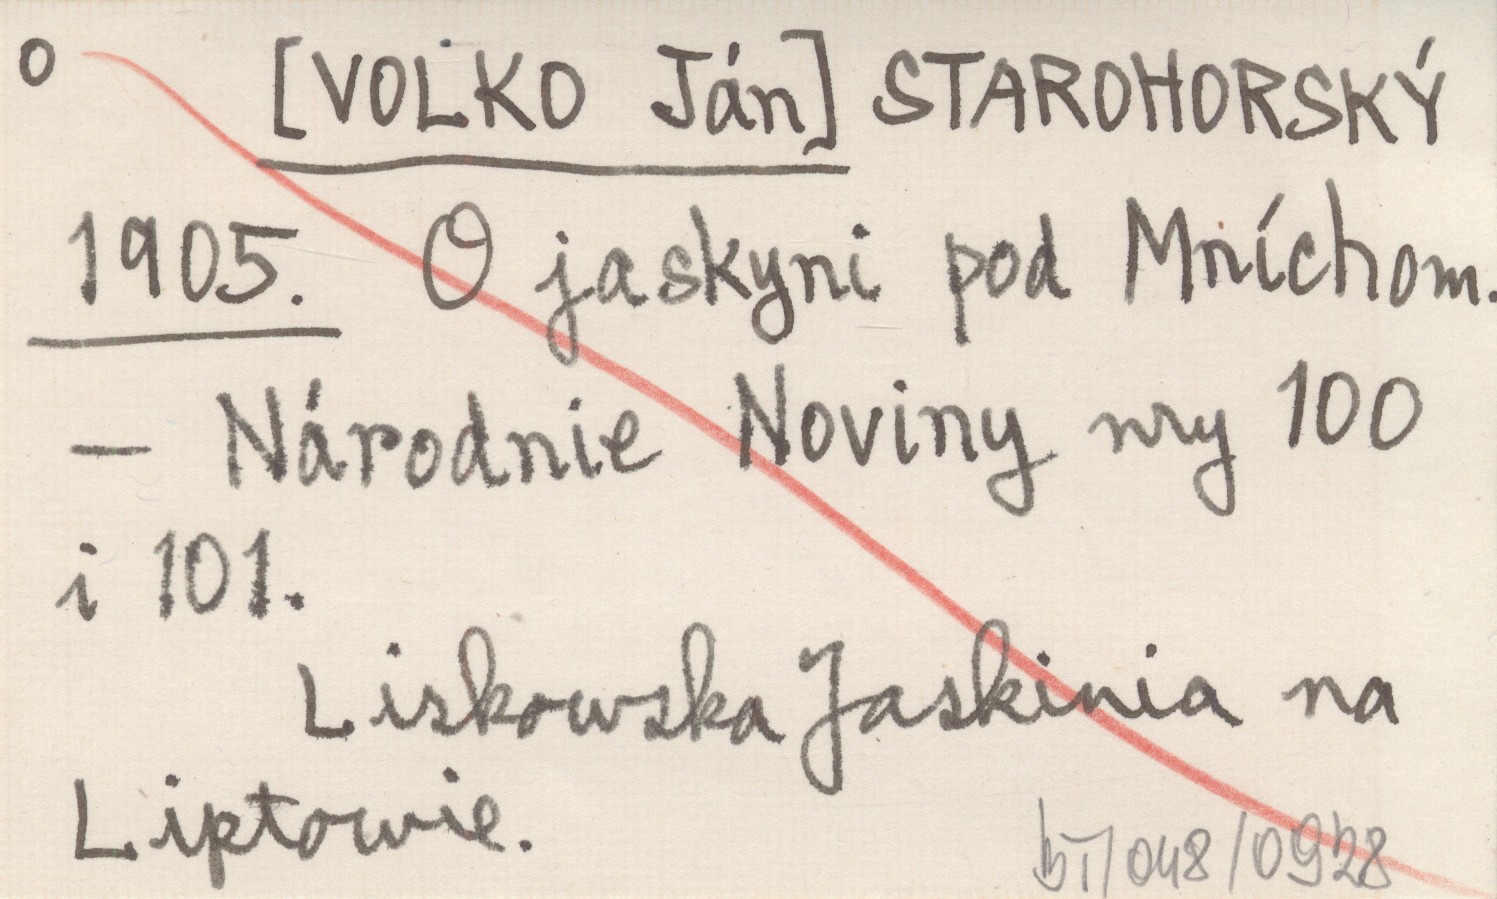 o [VOLKO Ján] STAROHORSKÝ
1905. O jaskyni pod Mníchom.
— Národnie Noviny nry 100
i 101.
Liskowska Jaskinia na
Liptowie.
bT/048/0928